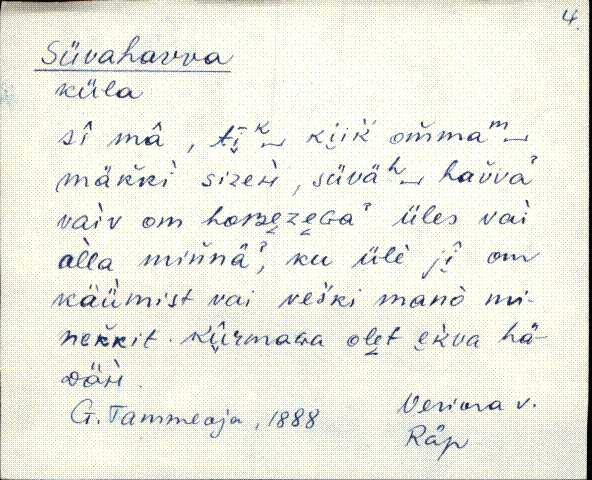 4.
Süvahavva
küla
sī mā, tī̮ᵏ‿ kii̮k om̆maᵐ‿
mäk̆ki sizeH, süväʰ‿ hav̆vaˀ
vaiv om hoʙ̥e̮ze̮ɢaˀ üles vai
alla min̆näˀ, ku üle ji̮ om
käümist vai veški mano mi-
nek̆kit. Kūrmaɢa ole̮t e̮kva hä-
ᴅäH.
G. Tammeoja, 1888
Veriora v.
Räp